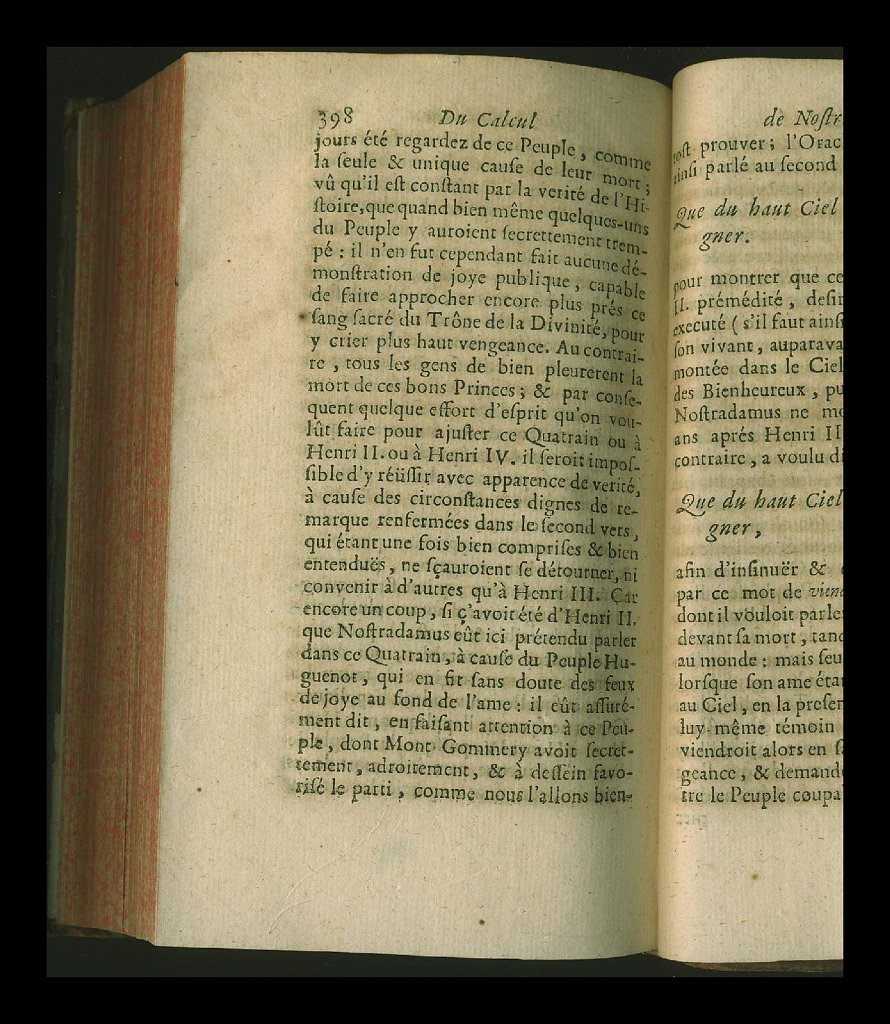 398 Du Calcul
jours été regardez de ce Peuple, comme
la ſeule & unique cauſe de leur mort;
vû qu'il eſt conſtant par la verité de l'Hi-
ſtoire, que quand bien même quelques-uns
du Peuple y auroient ſecrettement trem-
pé : il n'en fut cependant fait aucune dé-
monſtration de joye publique, capable
de faire approcher encore plus prés ce
ſang ſacré du Trône de la Divinité, pour
y crier plus haut vengeance. Au contrai-
re, tous les gens de bien pleurerent la
mort de ces bons Princes; & par conſe-
quent quelque effort d'eſprit qu'on vou-
lût faire pour ajuſter ce Quatrain ou à
Henri II. ou à Henri IV. il ſeroit impoſ-
ſible d'y réüſſir avec apparence de verité,
à cauſe des circonſtances dignes de re-
marque renfermées dans le ſecond vers,
qui étant une fois bien compriſes & bien
entenduës, ne ſçauroient ſe détourner, ni
convenir à d'autres qu'à Henri III. Car
encore un coup, ſi ç'avoit été d'Henri II.
que Noſtradamus eût ici prétendu parler
dans ce Quatrain, à cauſe du Peuple Hu-
guenot, qui en fit ſans doute des feux
de joye au fond de l'ame : il eût aſſuré-
ment dit, en faiſant attention à ce Peu-
ple, dont Mont-Gommery avoit ſecret-
tement, adroitement, & à deſſein favo-
riſé le parti, comme nous l'allons bien-
de Noſtr
toſt prouver; l'Orac
ainſi parlé au ſecond
Que du haut Ciel
gner.
pour montrer que ce
II. prémédité, deſir
executé ( s'il faut ainſi
ſon vivant, auparava
montée dans le Ciel
des Bienheureux, pu
Noſtradamus ne mo
ans aprés Henri II
contraire, a voulu di
Que du haut Ciel
gner,
afin d'inſinuër &
par ce mot de vien
dont il vouloit parle
devant ſa mort, tand
au monde : mais ſeu
lorſque ſon ame éta
au Ciel, en la preſen
luy-même témoin
viendroit alors en ſ
geance, & demand
tre le Peuple coupa